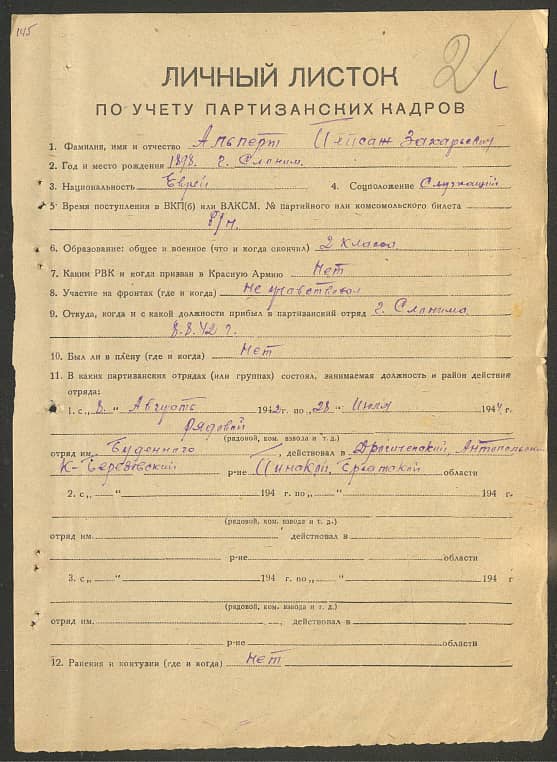 145
2
ЛИЧНЫЙ ЛИСТОК
ПО УЧЕТУ ПАРТИЗАНСКИХ КАДРОВ
1. Фамилия, имя и отчество Альперт Захарьевич
2. Год и место рождения 1898. г. Слоним.
3. Национальность Еврей 4. Соцположение Служащий
5 Время поступления в ВКП(б) или ВЛКСМ, № партийного или комсомольского билета
б/п.
6. Образование: общее и военное (что и когда окончил) 2 класса
7. Каким РВК и когда призван в Красную Армию Нет
8. Участие на фронтах (где и когда) не участвовал
9. Откуда, когда и с какой должности прибыл в партизанский отряд г. Слонима
8.8.42 г.
10. Был ли в плену (где и когда) Нет
11. В каких партизанских отрядах (или группах) состоял, занимаемая должность и район действия
отряда:
1. с „ 8 " Августа 1942 г. по „ 28 " Июля 1944 г.
рядовой
(рядовой, ком. взвода и т. д.)
отряд им. Буденного, действовал в Дрогиченский, Антопольский
К-Березовский р-не Пинской, Брестской области
2. с „ " 194 г. по „ " 194 г.
(рядовой, ком. взвода и т. д.)
отряд им. действовал в
р-не области
3. с „ " 194 г. по „ " 194 г
(рядовой, ком. взвода и т. д.)
отряд им. , действовал в
р-не области
12. Ранения и контузии (где и когда) нет